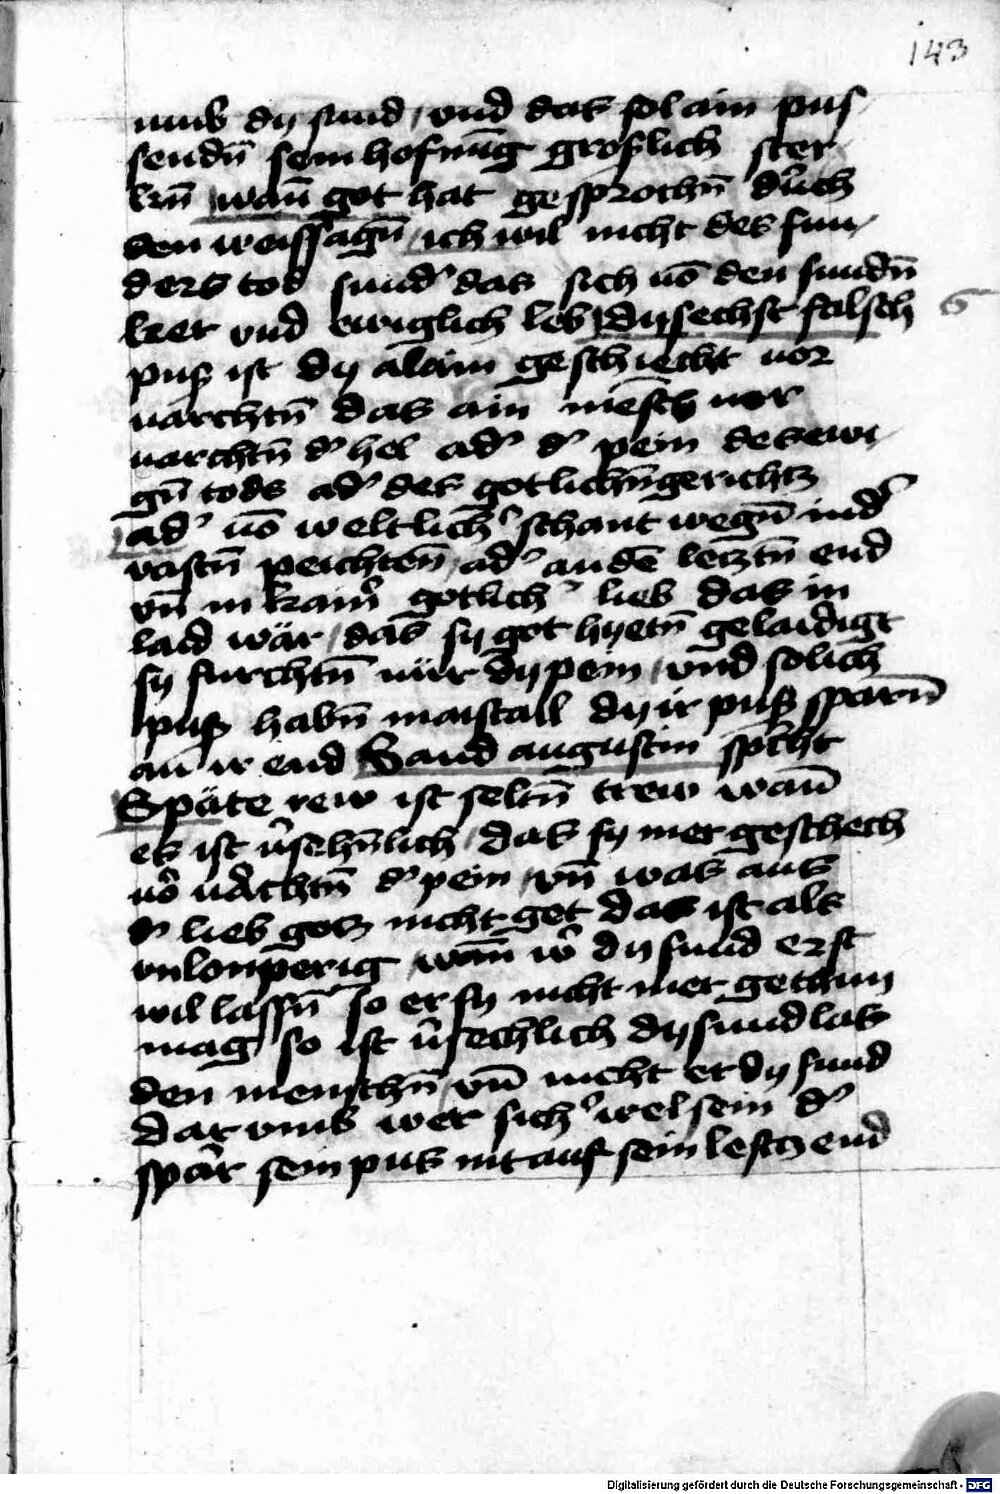 143
umb dy sund / vnd das sol ain pus
sendn̄ sein hofnūg groslich ster
kn̄ wan̄ got hat gesprochn̄ durch
den weissagn̄ / ich wil nicht des sun
ders tod sund' das sich uō den sundn̄
ker vnd ewiglich leb / dy sechst falsch 6
puß ist dy alain geschiecht vor
uarchtn̄ das ain mēsch uor
uorchtn̄ d' hel ad' d' pein des ewi
gn̄ tods ad' des gotlichn̄ gerichtz
ad' uō weltlich' schant wegn̄ in d'
vastn̄ peichten̄ / ad' an dē letztn̄ end
vn̄ in kain' gotlich' lieb das in
laid wär / das sy got hyetn̄ gelaidigt
sy furchtn̄ nür dy pein / vnd solich
puß habn̄ maistail dy ir puß sparn̄
an ir end Sand augustin spricht
Späte rew ist seltn̄ trew wan̄
es ist v'sehnlich / das sy mer geschech
uō uorchtn̄ d' pein / vn̄ was aus
d' lieb gotz nicht get das ist als
vnlonperig / wan̄ w' dy sund erst
wil lassn̄ so er sy nicht mer getuun
mag / so ist v'sechlich dy sund las
den menschn̄ / vn̄ nicht er dy sund
dar vmb wer sich' wel sein d'
spar sein pus nit auf sein lestz end
Digitalisierung gefördert durch die Deutsche Forschungsgemeinschaft - DFG